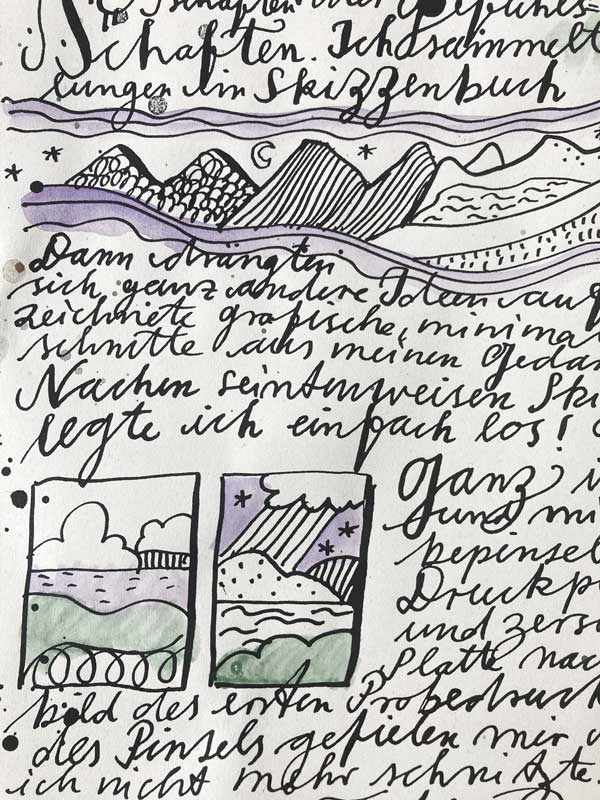 schaften oder Gefühls-
schaften. Ich sammelt
lungen im Skizzenbuch
Dann drängten
sich ganz andere Ideen auf
zeichnete grafische, minimal
schnitte aus meinen Gedan
Nachen seintenweisen Ski
legte ich einfach los!
Ganz i
und mi
bepinsel
Druckp
und zers
Platte nac
bild des ersten Probedruck
des Pinsels gefielen mir
ich nicht mehr schnitzte.